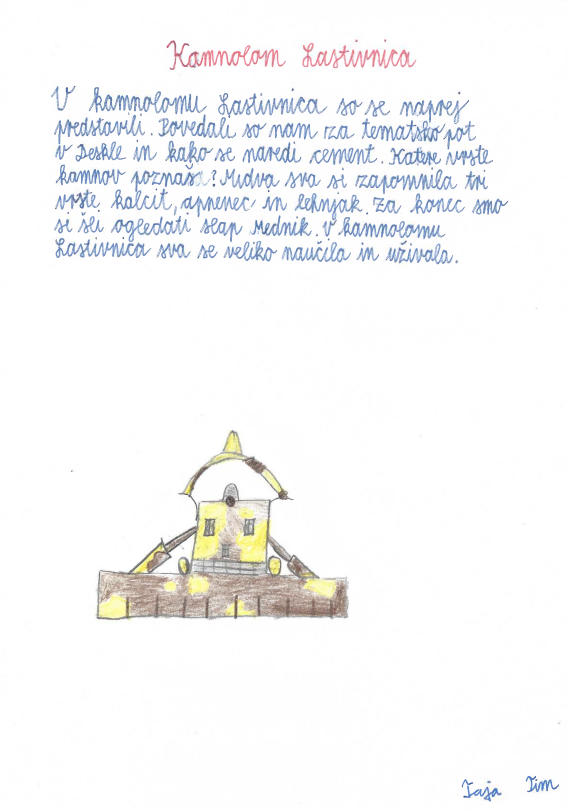 Kamnolom Lastivnica
V kamnolomu Lastivnica so se najprej
predstavili. Povedali so nam za tematsko pot
v Deskle in kako se naredi cement. Katere vrste
kamnov poznaš? Midva sva si zapomnila tri
vrste kalcit, apnenec in lehnjak. Za konec smo
si šli ogledati slap Mednik. V kamnolomu
Lastivnica sva se veliko naučila in uživala.
Taja Tim